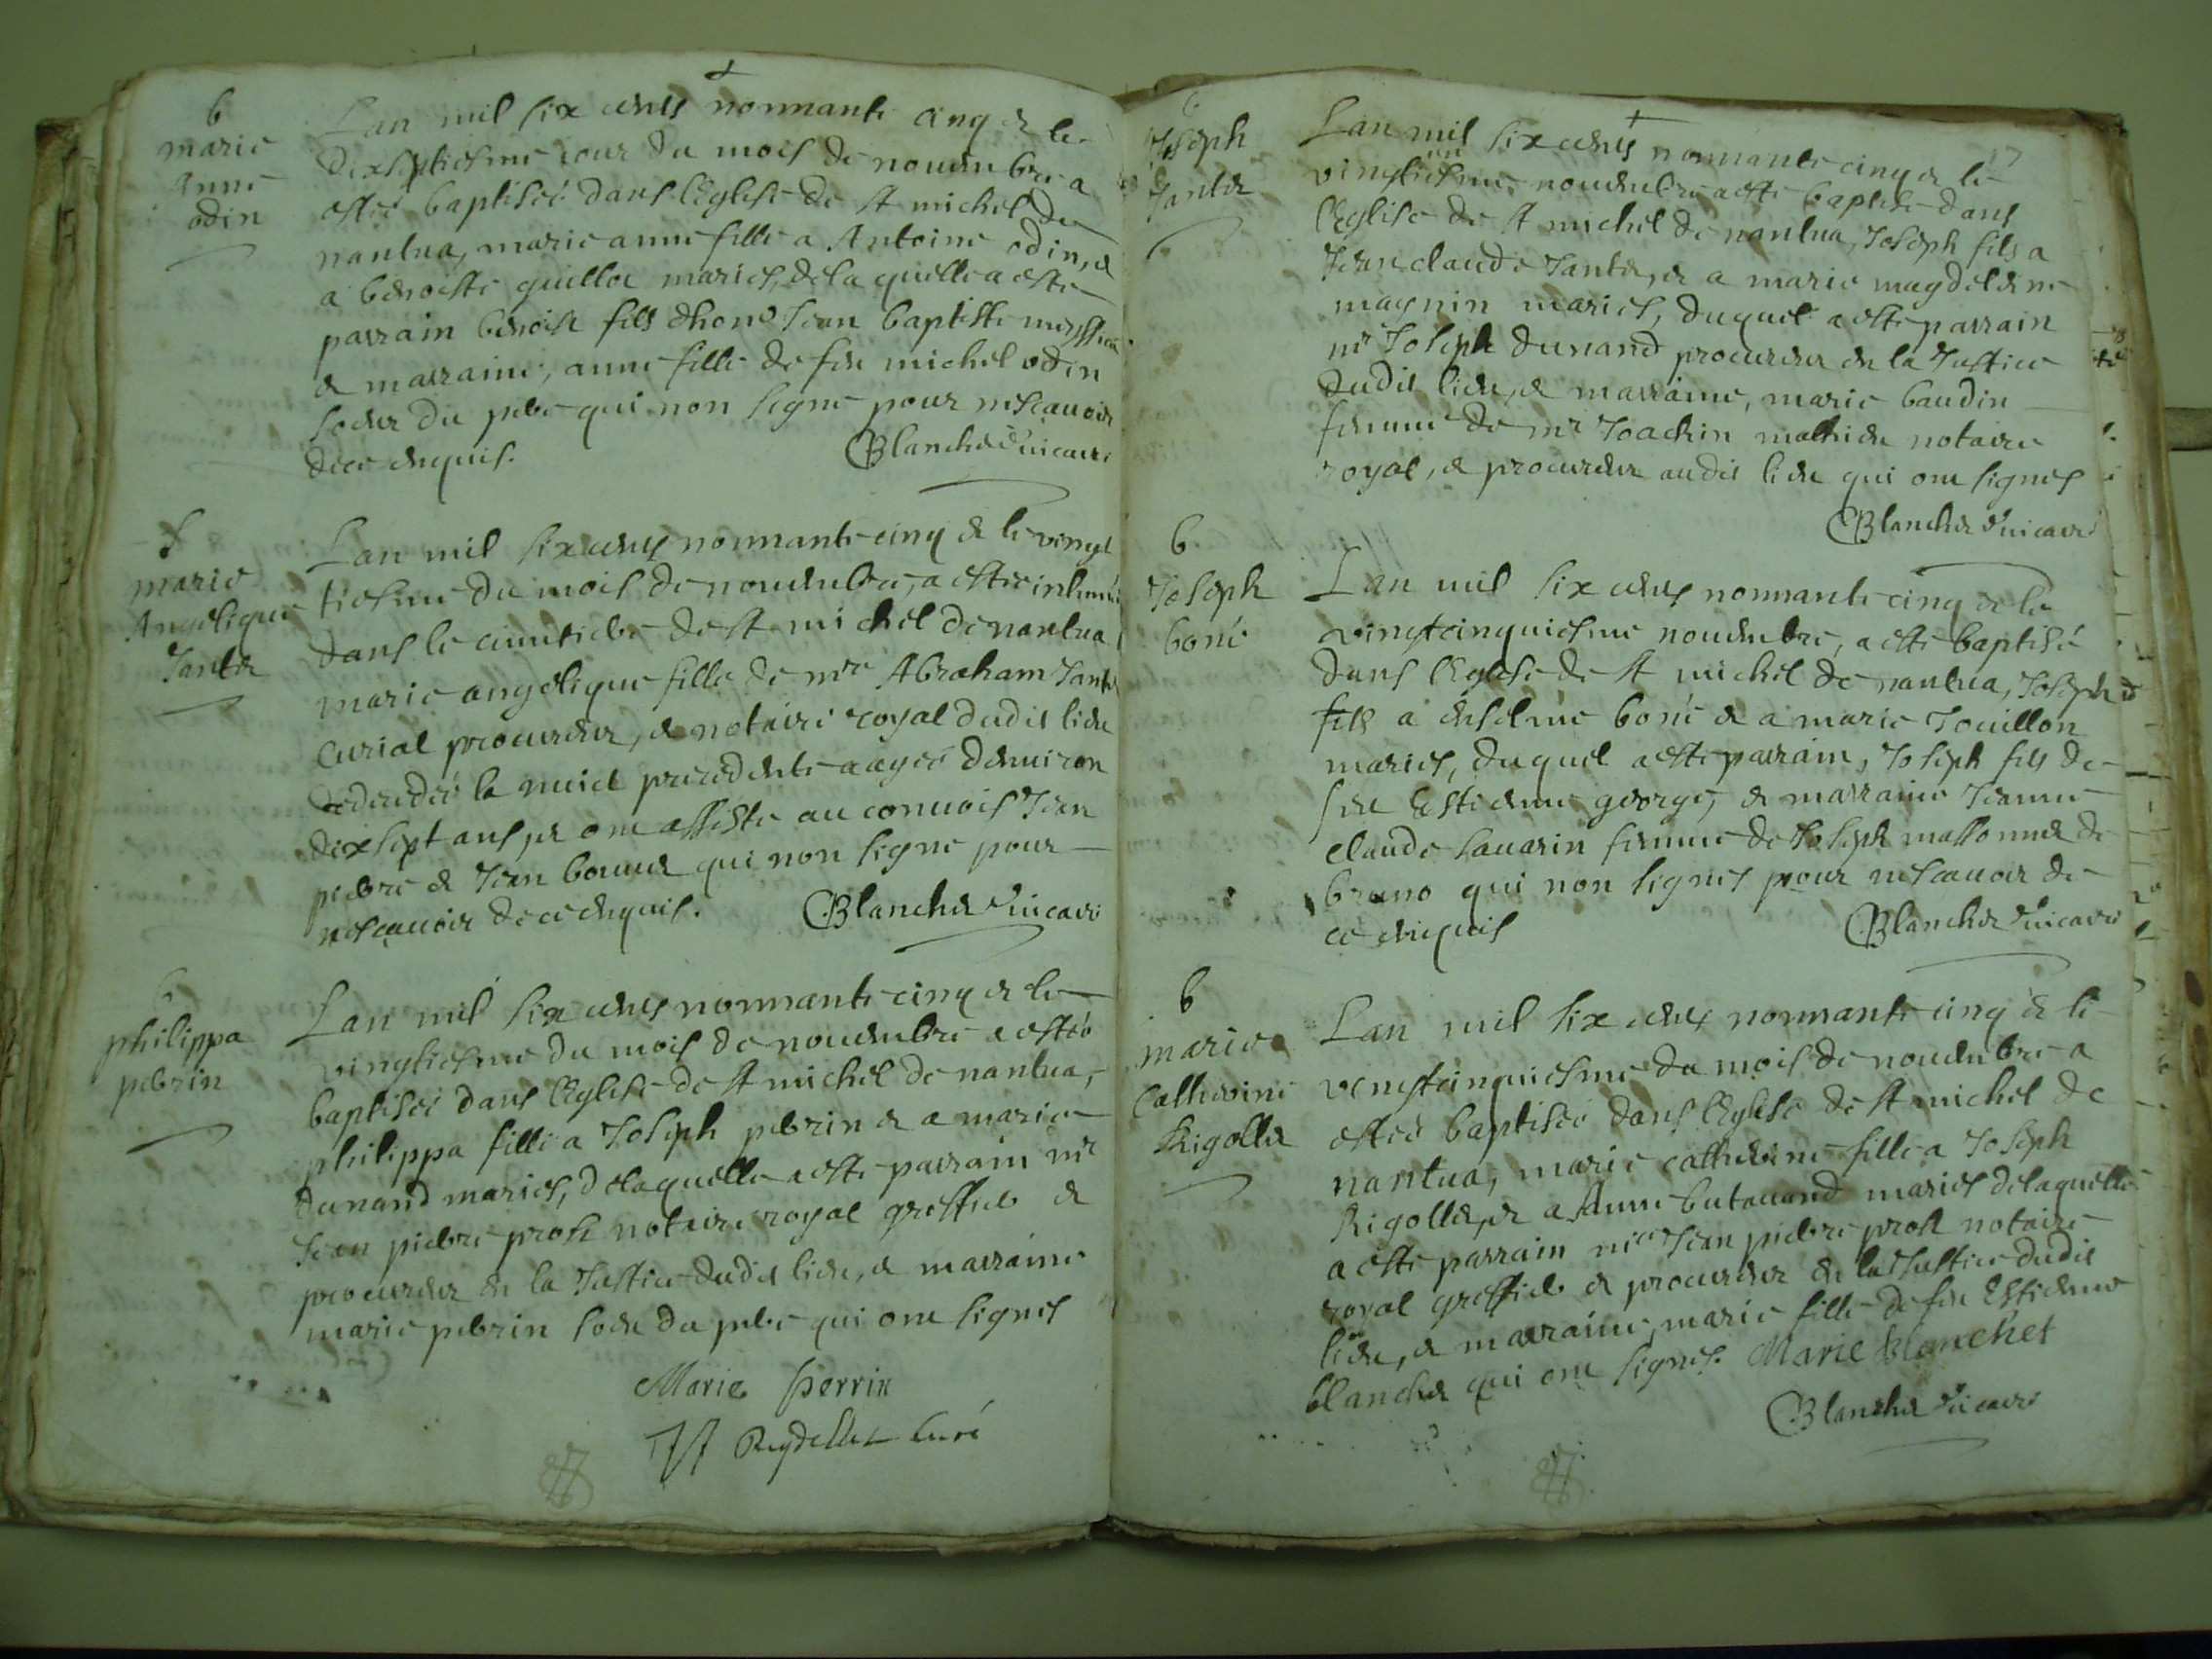 b
marie
Anne
odin
Lan mil six cents nonnante cinq & le
dixseptiesme iour du mois de nouembre a
estée baptisée dans leglise de st michel de
nantua, marie anne fille a Antoine odin, &
a benoiste guillot mariés, de la quelle a esté
parrain benoist fils dhono Jean baptiste
& marraine, anne fille de feu michel odin
soeur du pere qui non signé pour nescauoir
dece enquis. Blanchet vicaire
S
marie
Angelique
Jantet
Lan mil six cents nonnante cinq & le vingt
tiesme du mois de nouembre, a estée inhumée
dans le cimetiere de st michel de nantua
marie angelique fille de mre Abraham Jantet
Curial procureur, & notaire royal dudit lieu
decedée la nuict precedente aagée denuiron
dixsept ans, & ont assisté au conuois Jean
pierre & Jean bonnet qui non signé pour
nescauoir de ce enquis. Blanchet vicaire
b
philippa
perrin
Lan mil six cents nonnante cinq & le
vingtiesme du mois de nouembre a estée
baptisée dans leglise de st michel de nantua,
philippa fille a Joseph perrin & a marie
dunand mariés, de laquelle a esté parrain mre
Jean pierre prost notaire royal greffier &
procureur en la Justice dudit lieu, & marraine
marie perrin soeur du pere qui ont signés
Marie perrin
Reydellet curé
17
b
Joseph
Jantet
Lan mil six cents nonnante cinq & le
un
vingtiesme nouembre a esté baptisé dans
leglise de st michel de nantua, Joseph fils a
Jean claude Jantet, & a marie magdeleine
magnin mariés, duquel a esté parrain
mr Joseph dunand procureur en la Justice
dudit lieu, & marraine, marie baudin
femme de mr Joachin mathieu notaire
royal, & procureur audit lieu qui ont signés
Blanchet vicaire
b
Joseph
boné
Lan mil six cents nonnante cinq & le
vingtcinquiesme nouembre, a esté baptisé
dans leglise de st michel de nantua, Joseph
fils a anselme boné & a marie Jouillon
mariés, duquel a esté parrain, Joseph fils de
feu Estienne george, & marraine Jeanne
claude sauarin femme de Joseph massonnet de
brano qui non signés pour nescauoir de
ce enquis Blanchet vicaire
b
marie
Catherine
Rigollet
Lan mil six cents nonnante cinq & le
vingtcinquiesme du mois de nouembre a
estée baptisée dans leglise de st michel de
nantua, marie catherine fille a Joseph
Rigollet, & a Anne butauand mariés delaquelle
a esté parrain mre Jean pierre prost notaire
royal greffier & procureur en la Justice dudit
lieu, & marraine, marie fille de feu Estienne
blanchet qui ont signés. Marie blanchet
Blanchet vicaire